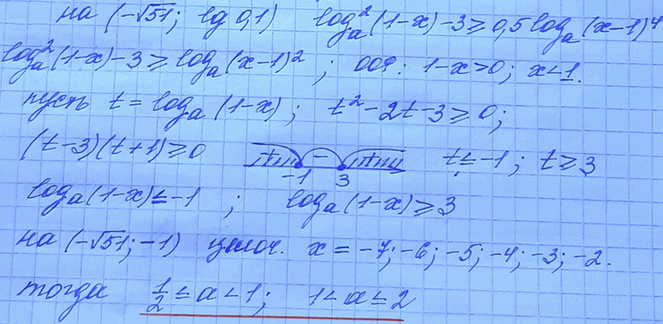 на (-√51; lg 0,1) log²ₐ(1-x)-3≥0,5logₐ(x-1)⁴
log²ₐ(1-x)-3≥logₐ(x-1)²; ООФ: 1-x>0; x<1.
пусть t=logₐ(1-x); t²-2t-3≥0;
(t-3)(t+1)≥0 + - + -1 3 t≤-1; t≥3
logₐ(1-x)≤-1; logₐ(1-x)≥3
на (-√51; -1) целоч. x=-7;-6;-5;-4;-3;-2.
тогда 1/2≤a<1; 1<a≤2